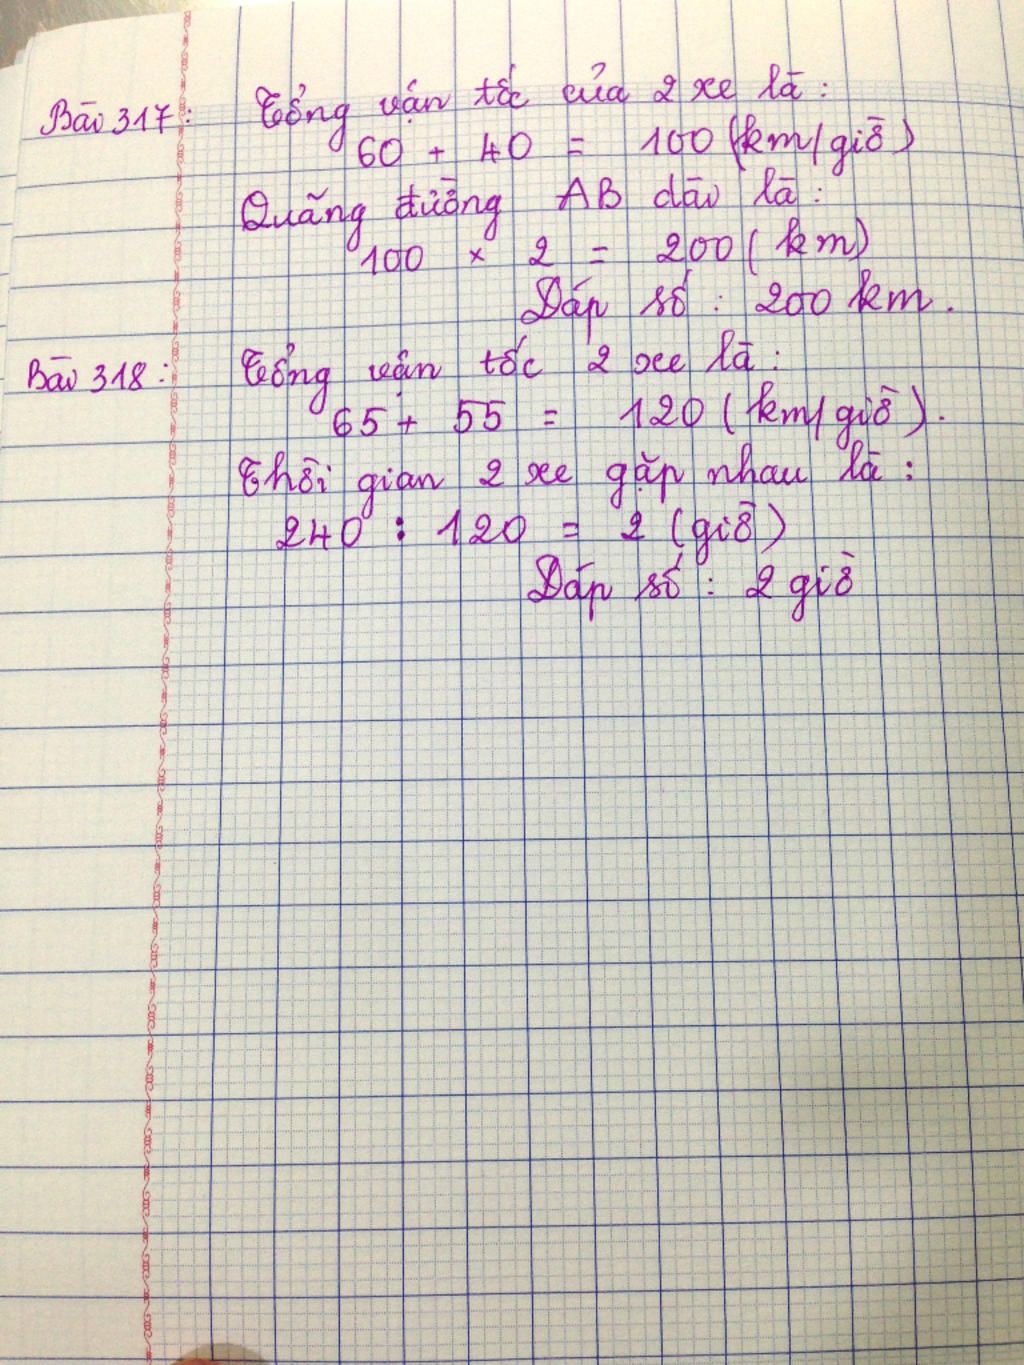 Bài 317: Tổng vận tốc của 2 xe là:
60 + 40 = 100 (km/giờ)
Quãng đường AB dài là:
100 × 2 = 200 (km)
Đáp số : 200 km.
Bài 318: Tổng vận tốc 2 xe là:
65 + 55 = 120 (km/giờ).
Thời gian 2 xe gặp nhau là:
240 : 120 = 2 (giờ)
Đáp số : 2 giờ